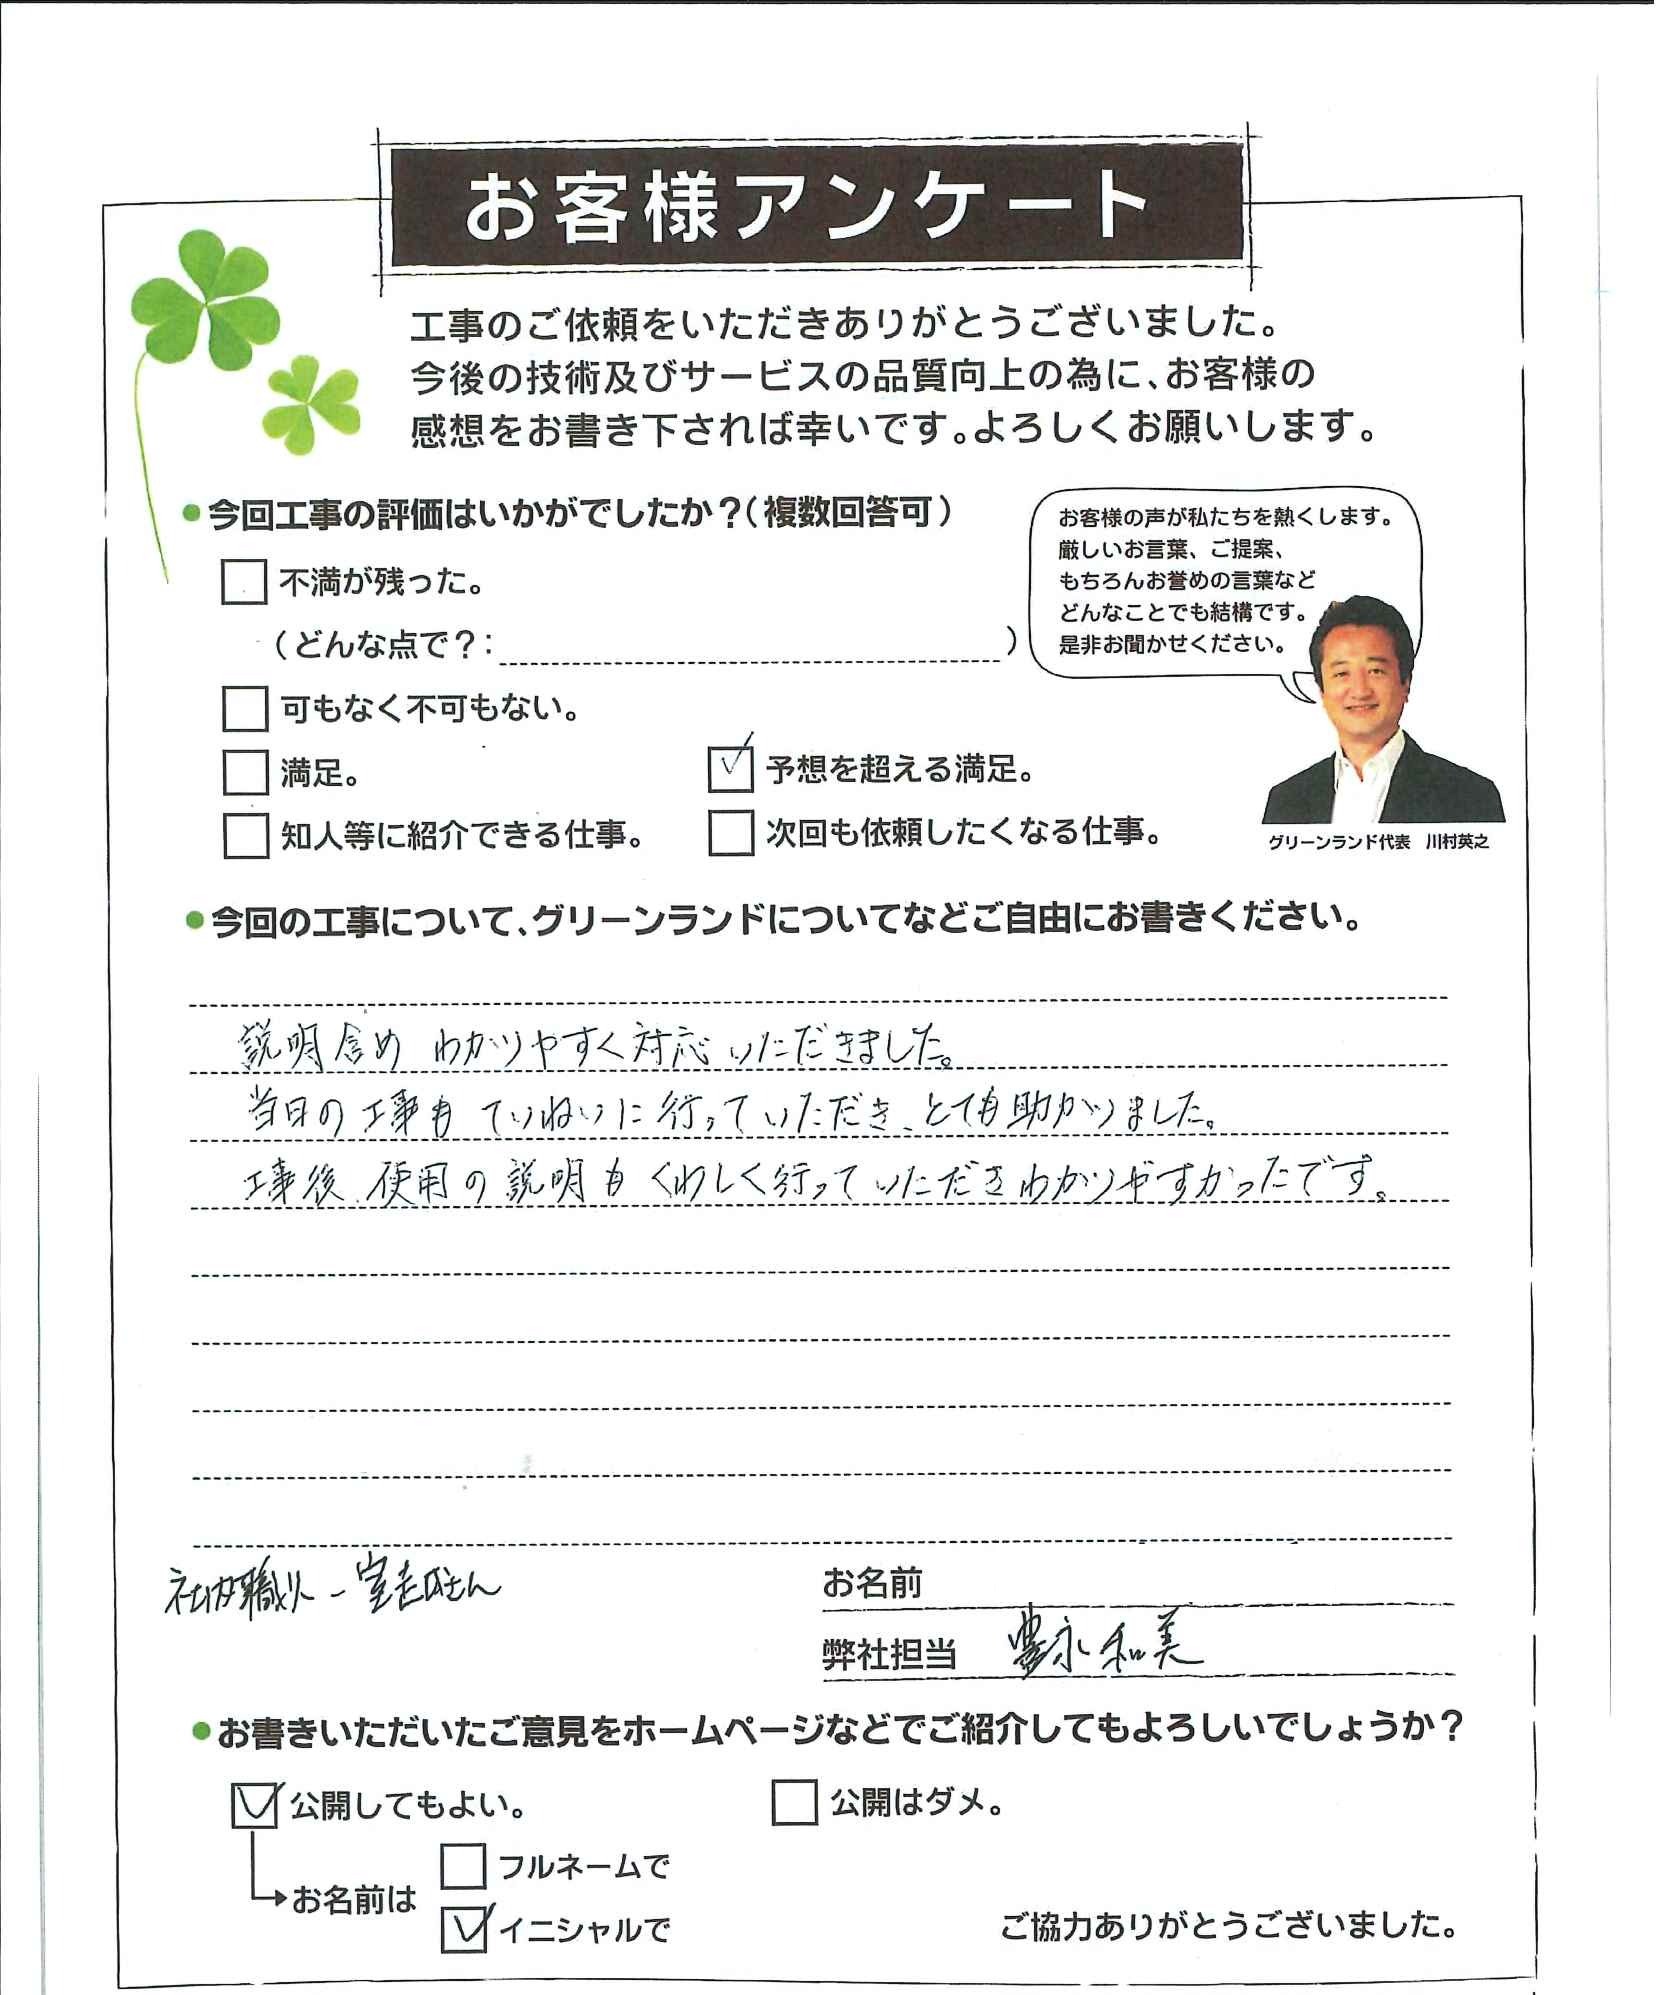 お客様アンケート
工事のご依頼をいただきありがとうございました。
今後の技術及びサービスの品質向上の為に、お客様の
感想をお書き下されば幸いです。よろしくお願いします。
●今回工事の評価はいかがでしたか？（複数回答可）
お客様の声が私たちを熱くします。
厳しいお言葉、ご提案、
もちろんお誉めの言葉など
どんなことでも結構です。
是非お聞かせください。
不満が残った。
（どんな点で？：　）
可もなく不可もない。
満足。
予想を超える満足。
知人等に紹介できる仕事。
次回も依頼したくなる仕事。
グリーンランド代表　川村英之
●今回の工事について、グリーンランドについてなどご自由にお書きください。
説明含め わかりやすく対応いただきました。
当日の工事も ていねいに行っていただき、とても助かりました。
工事後、使用の説明も くわしく行っていただきわかりやすかったです。
社内職人-室
さん
お名前
弊社担当 豊永和美
●お書きいただいたご意見をホームページなどでご紹介してもよろしいでしょうか？
公開してもよい。
公開はダメ。
お名前は
フルネームで
イニシャルで
ご協力ありがとうございました。